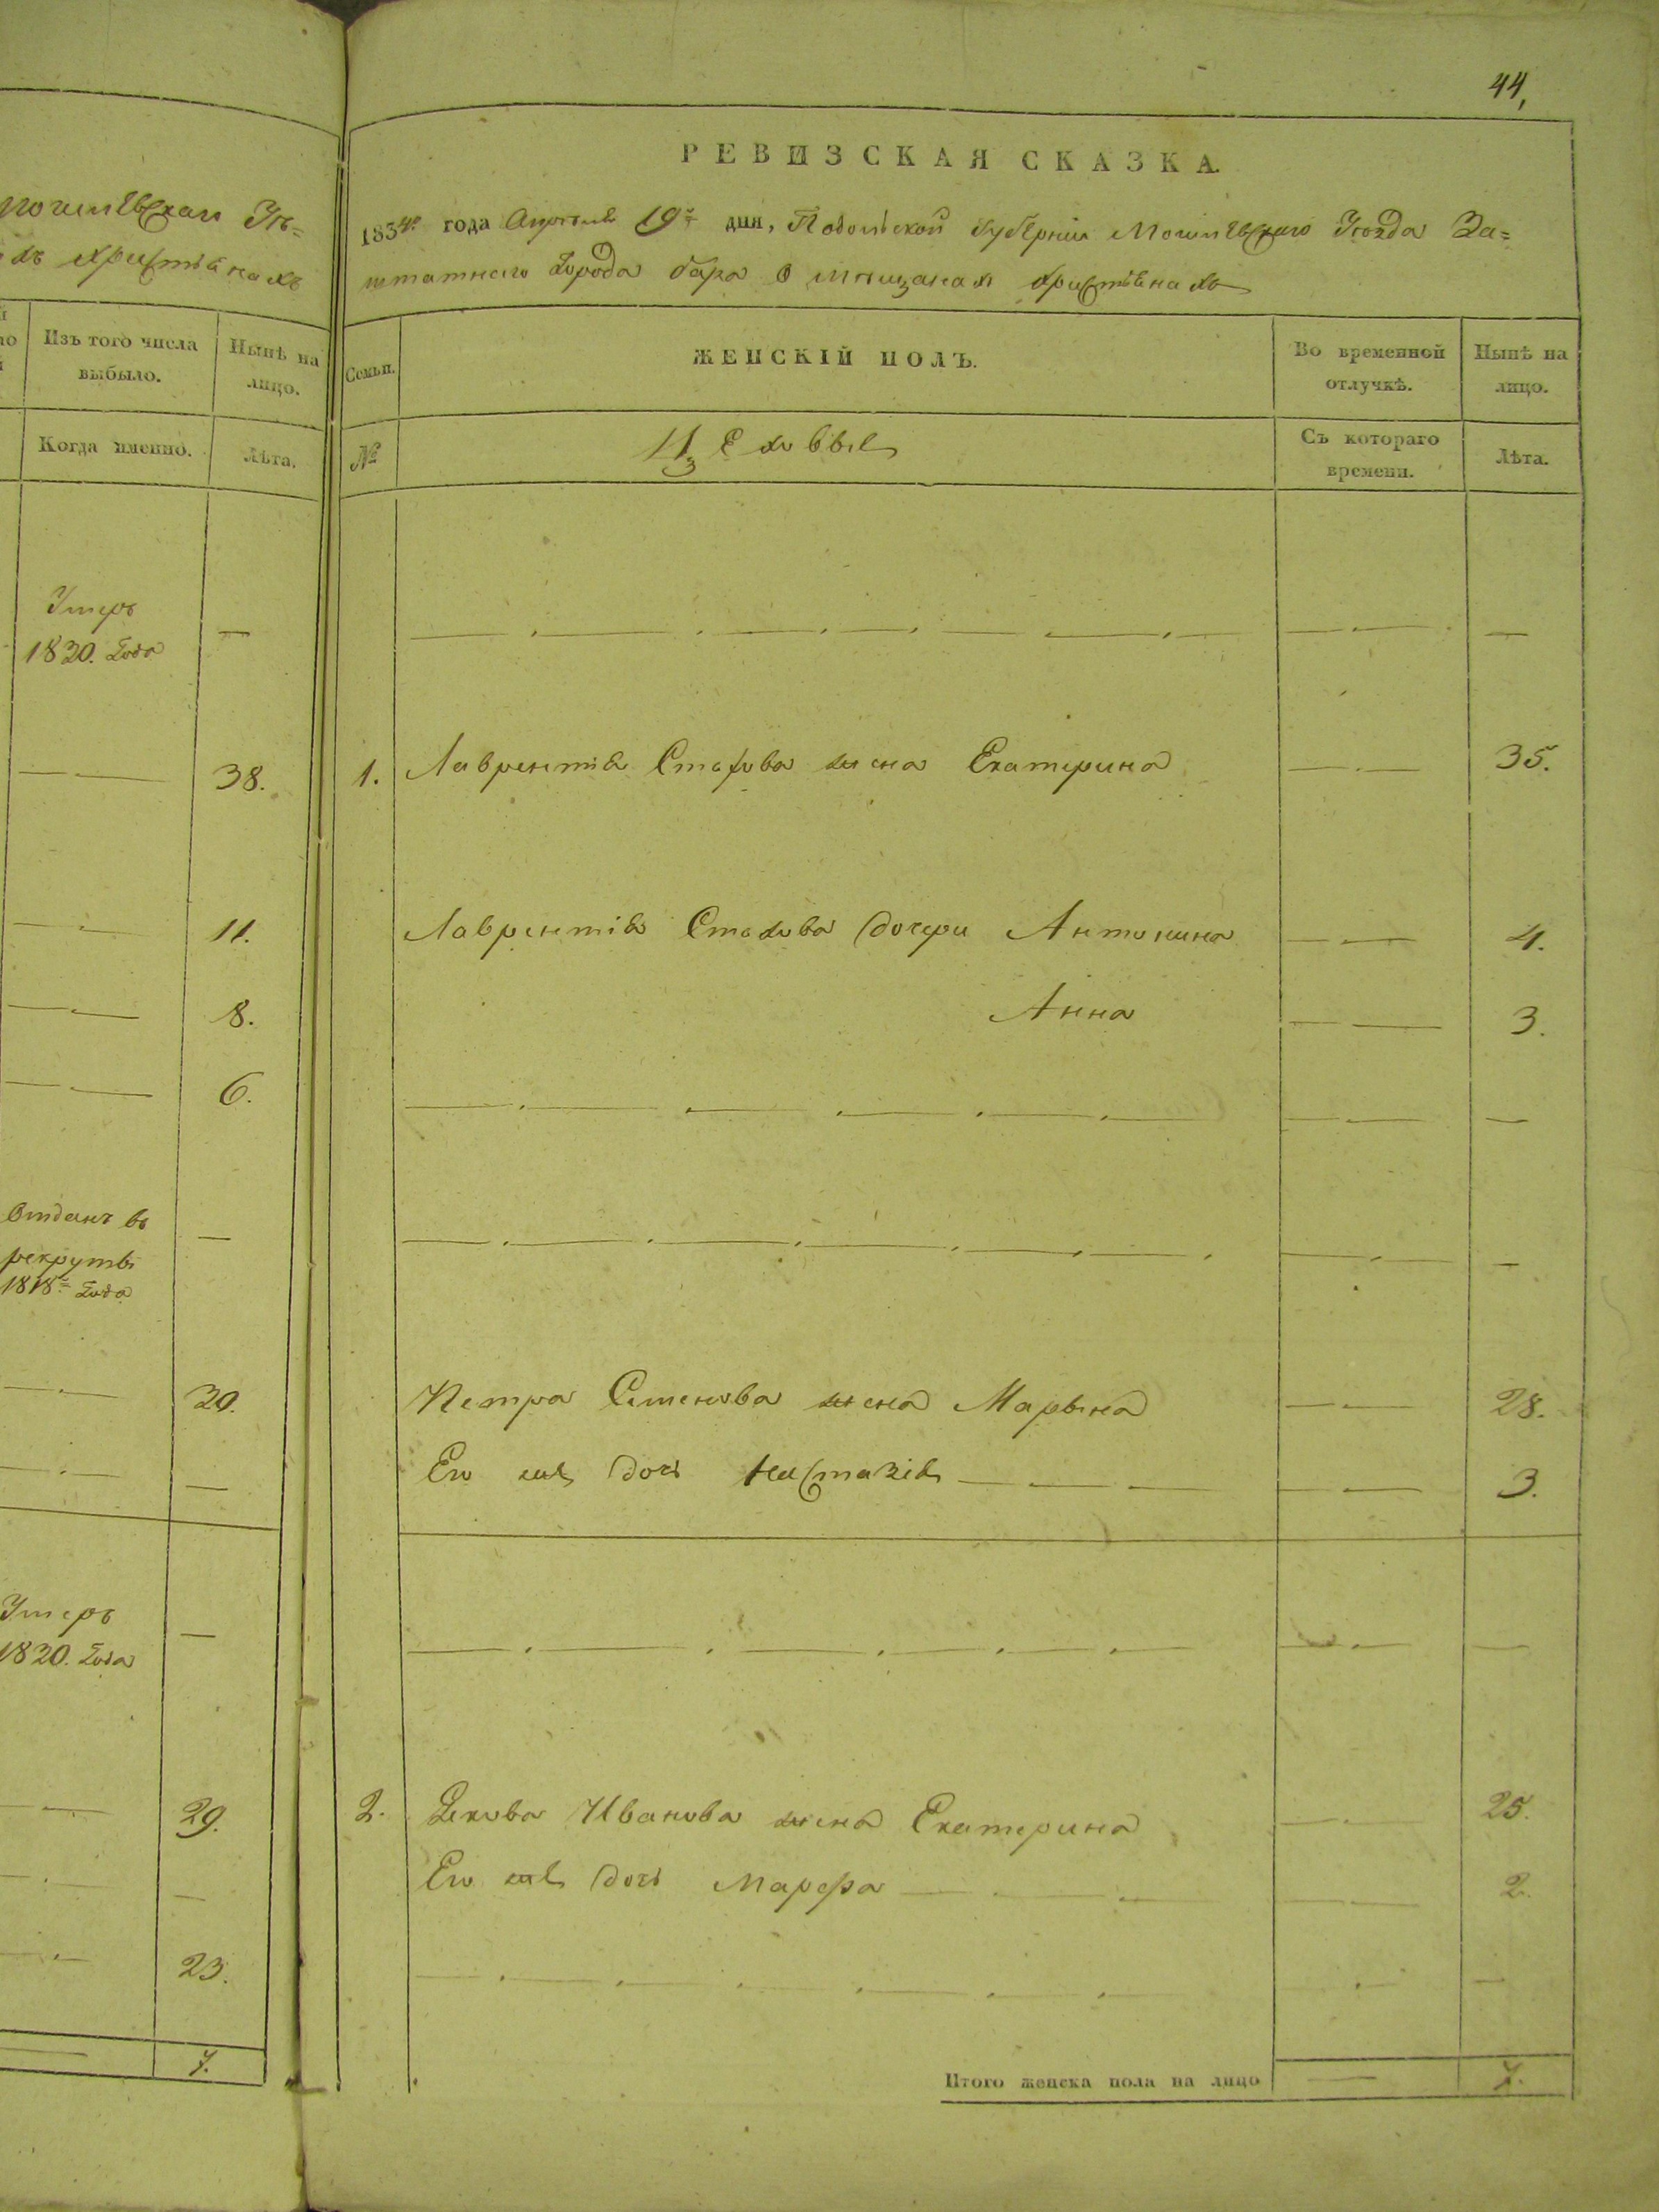 44,
могилевскаго Уѣ=
хъ христіянахъ
Изъ того числа
выбыло.
Нынѣ на
лицо.
Когда именно.
Лѣта.
Умеръ
1830. Года
—
38.
11.
8.
6.
Отданъ въ
рекруты
1818го Года
—
30.
—
Умеръ
1830. Года
—
29.
—
23.
7.
РЕВИЗСКАЯ СКАЗКА.
1834го года Апрѣля 19го дня, Подольской Губерніи Могилевскаго Уѣзда За=
штатнаго Города бара о мѣщанахъ христіянахъ
Семьи.
ЖЕНСКІЙ ПОЛЪ.
Во временной
отлучкѣ.
Нынѣ на
лицо.
№
Съ котораго
времени.
Лѣта.
1. Лаврентія Стахова жена Екатерина 35.
Лаврентія Стахова дочери Антонина 4.
Анна 3.
Петра Семенова жена Марьяна 28.
Его же дочь Настазія 3.
2. Якова Иванова жена Екатерина 25.
Его же дочь Марфа 2.
Итого женска пола на лицо 7.